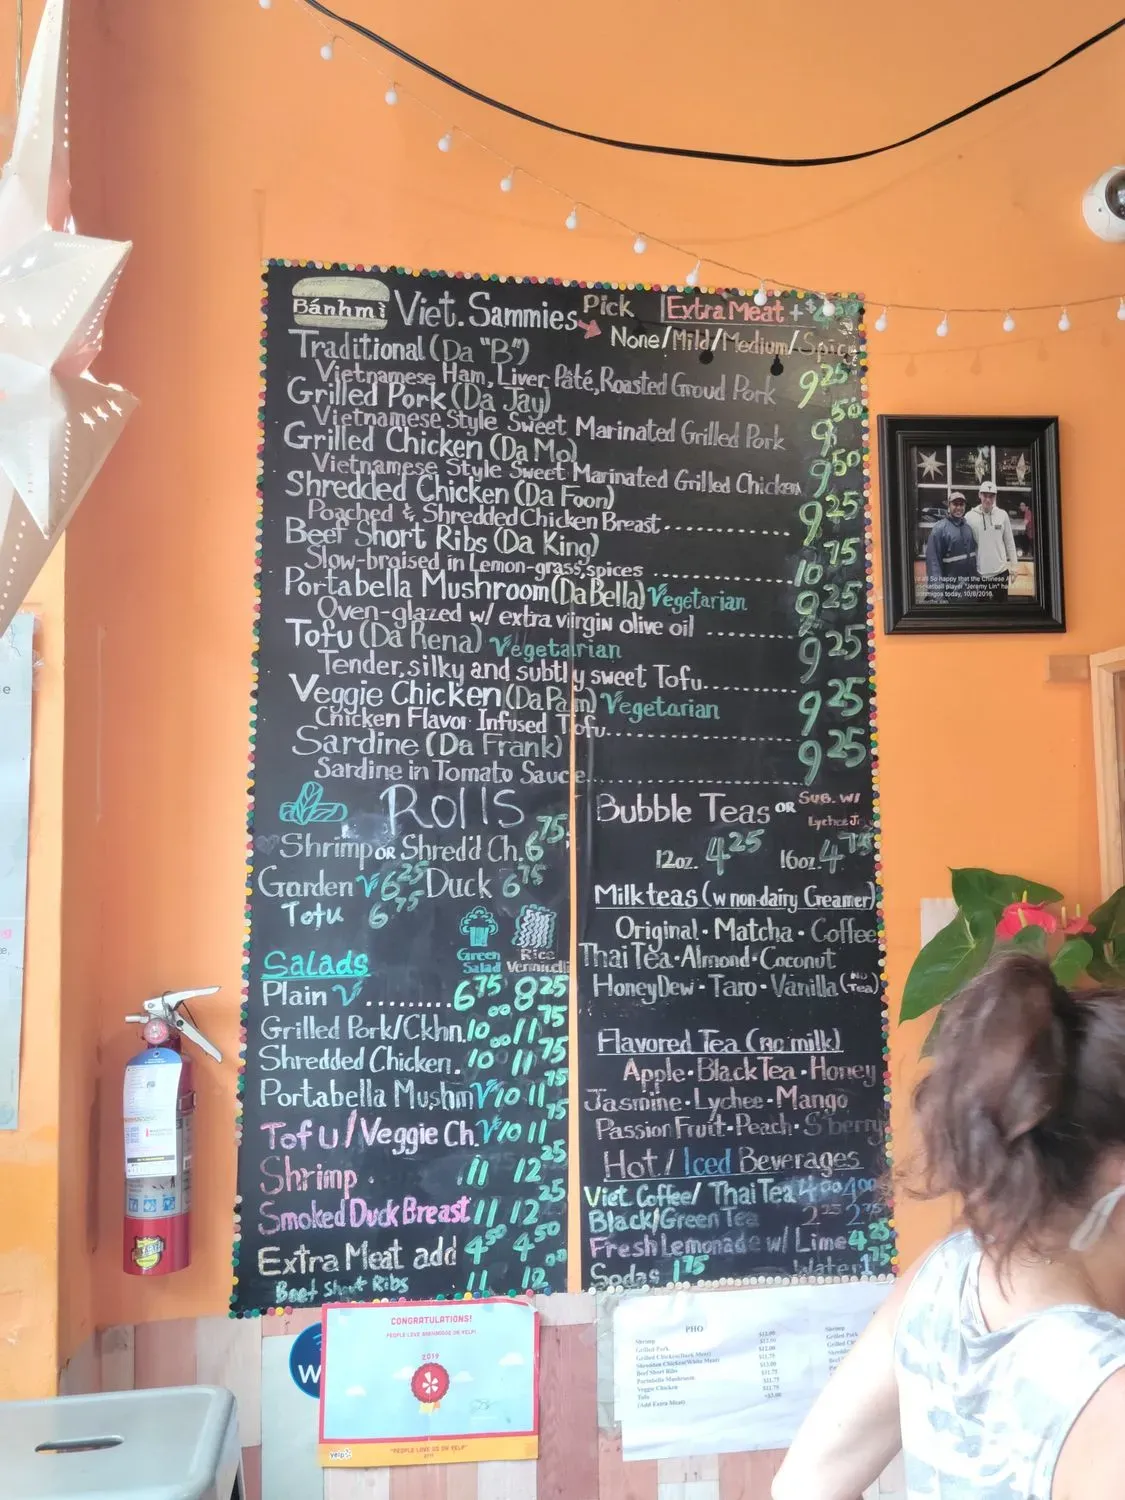 Bánhmì Viet. Sammies Pick Extra Meat +
None/Mild/Medium/Spicy
Traditional (Da "B")
Vietnamese Ham, Liver Pâté, Roasted Groud Pork 9 25
Grilled Pork (Da Jay)
Vietnamese Style Sweet Marinated Grilled Pork 9 50
Grilled Chicken (Da Mo)
Vietnamese Style Sweet Marinated Grilled Chicken 9 50
Shredded Chicken (Da Foon)
Poached & Shredded Chicken Breast....... 9 25
Beef Short Ribs (Da King)
Slow-braised in Lemon-grass, spices ............ 10 75
Portabella Mushroom (Da Bella) Vegetarian
Oven-glazed w/ extra virgin olive oil ....... 9 25
Tofu (Da Rena) Vegetarian
Tender, silky and subtly sweet Tofu....... 9 25
Veggie Chicken (Da Pam) Vegetarian
Chicken Flavor Infused Tofu.............. 9 25
Sardine (Da Frank)
Sardine in Tomato Sauce................ 9 25
Rolls
Shrimp or Shred'd Ch. 6 75
Garden V 6 25 Duck 6 75
Tofu 6 75
Green Salad Rice Vermicelli
Salads
Plain V ......... 6 75 8 25
Grilled Pork/Ckhn. 10 00 11 75
Shredded Chicken. 10 00 11 75
Portabella Mushm V 10 11 75
Tofu/Veggie Ch. V 10 11 75
Shrimp . 11 12 25
Smoked Duck Breast 11 12 25
Extra Meat add 4 50 4 50
Beef Short Ribs 11 12 00
Bubble Teas or Sub. w/
Lychee
12oz. 4 25 16oz. 4 75
Milk teas (w non-dairy Creamer)
Original · Matcha · Coffee
Thai Tea · Almond · Coconut
HoneyDew · Taro · Vanilla (no Tea)
Flavored Tea (no milk)
Apple · Black Tea · Honey
Jasmine · Lychee · Mango
Passion Fruit · Peach · S'berry
Hot / Iced Beverages
Viet. Coffee/ Thai Tea 4 00 4 00
Black/Green Tea 2 25 2 75
Fresh Lemonade w/ Lime 4 25
Sodas 1 75 Water 1 75
"Jeremy Lin"
today, 10/8/2016
CONGRATULATIONS!
2019
yelp
"PEOPLE LOVE US ON YELP"
W
PHO
Shrimp $12.00
Grilled Pork $12.00
Grilled Chicken(Dark Meat) $12.00
Shredden Chicken(White Meat) $11.75
Beef Short Ribs $13.00
Portabella Mushroom $11.75
Veggie Chicken $11.75
Tofu $11.75
(Add Extra Meat) +3.00
Shrimp
Grilled Pork